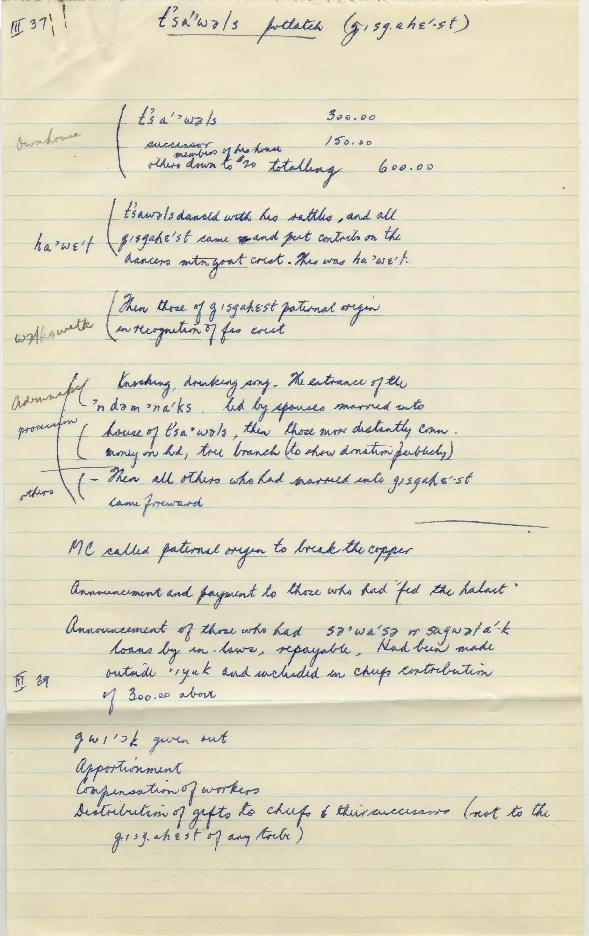 III 37
t's̓a'ʼwəls potlatch (g̣ısg.ahɛ'·st)
Own house
t's̓a'ʼwəls 300.00
successor 150.00
members of his house
others down to $20 totalling 600.00
t'sawəls danced with his rattles, and all
haʼwɛ'ł
gısgahɛ'st came and put contribs on the
dancers mtn goat crest. This was haʼwɛ'ł.
Then those of gısgahɛst paternal origin
in recognition of fas crest
Knocking, drinking song. The entrance of the
ʼn dəm ʼna'ks. led by spouses married into
procession
house of t'saʼwəls, then those more distantly conn.
money on hd, tree branch (to show donation publicly)
others
– Then all others who had married into gısgahɛ'·st
came foreward
MC called paternal origin to break the copper
Announcement and payment to those who had "fed the halait"
Announcement of those who had səʼwa'sə or sagwəła'·k
loans by in-laws, repayable, Had been made
outside ʼıyuk and included in chiefs contribution
III 39
of 300.00 above
gwı'ək given out
Apportionment
Compensation of workers
Distribution of gifts to chiefs & their successors (not to the
g.ısg.ahɛst of any tribe)